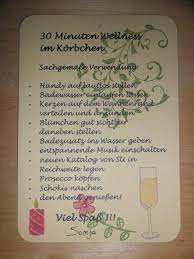 30 Minuten Wellness
im Körbchen
Sachgemäße Verwendung:
- Handy auf lautlos stellen
- Badewasser einlaufen lassen
- Kerzen auf dem Wannenrand
verteilen und anzünden
- Blümchen gut sichtbar
daneben stellen
- Badezusatz ins Wasser geben
- entspannende Musik einschalten
- neuen Katalog von SU in
Reichweite legen
- Prosecco köpfen
- Schokis naschen
- den Abend genießen!
Viel Spaß !!!
Sonja